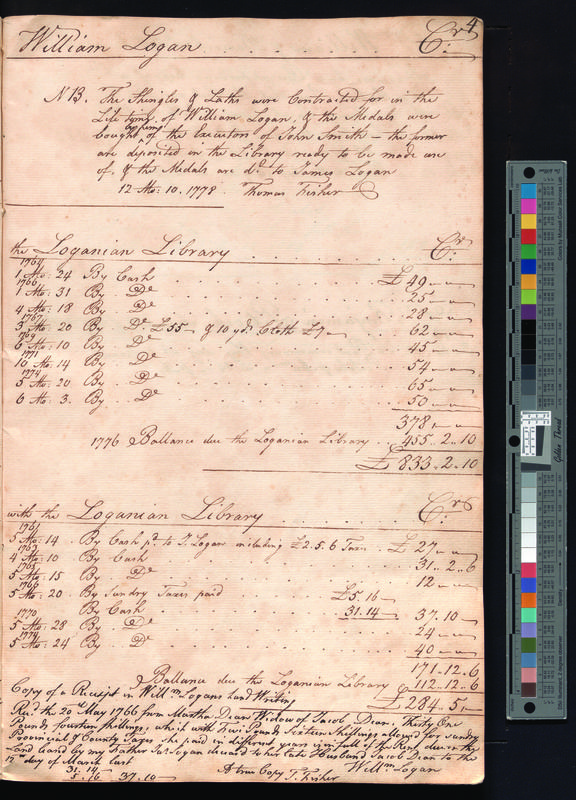 4
William Logan Cr
N 13. The Shingles & Laths were Contracted for in the
Life time of William Logan, & the Medals were
bought of the Executors of John Smith — the former
are deposited in the Library ready to be made use
of, & the Medals are dd to James Logan
12 Mo: 10. 1778. Thomas Fisher
the Loganian Library Cr
1764
1 Mo: 24 By Cash £ 49
1766
1 Mo: 31 By Do 25
4 Mo: 18 By Do 28
1767
3 Mo: 20 By Do £55 & 10 yds Cloth £7 62
6 Mo: 10 By Do 45
1771
10 Mo: 14 By Do 54
1774
5 Mo: 20 By Do 65
6 Mo: 3. By Do 50
378
1776 Ballance due the Loganian Library 455..2..10
£ 833..2..10
with the Loganian Library Crs
1761
5 Mo: 14 By Cash pd to J. Logan including £2.5.6 Taxes £ 27
4 Mo: 10 By Cash 31..2..6
1765
5 Mo: 15 By Do 12
1766
5 Mo: 20 By Sundry Taxes paid £5..16
By Cash 31.14 37.10
1770
5 Mo: 28 By Do 24
1774
5 Mo: 24 By Do 40
171..12..6
Ballance due the Loganian Library 112..12..6
£ 284.5
Copy of a Receipt in Willm Logans hand Writing
Recd the 20th May 1766 from Martha Dean Widow of Jacob Dean, Thirty One
Pounds fourteen shillings, which with five Pounds Sixteen Shillings allowed for sundry
Provincial & County Taxes paid in different years is in full of the Rent due on the
Land Leased by my Father Jas Logan deceased to her late Husband Jacob Dean to the
day of March last Willm Logan
31.14
5.16 37.10 A true Copy T. Fisher